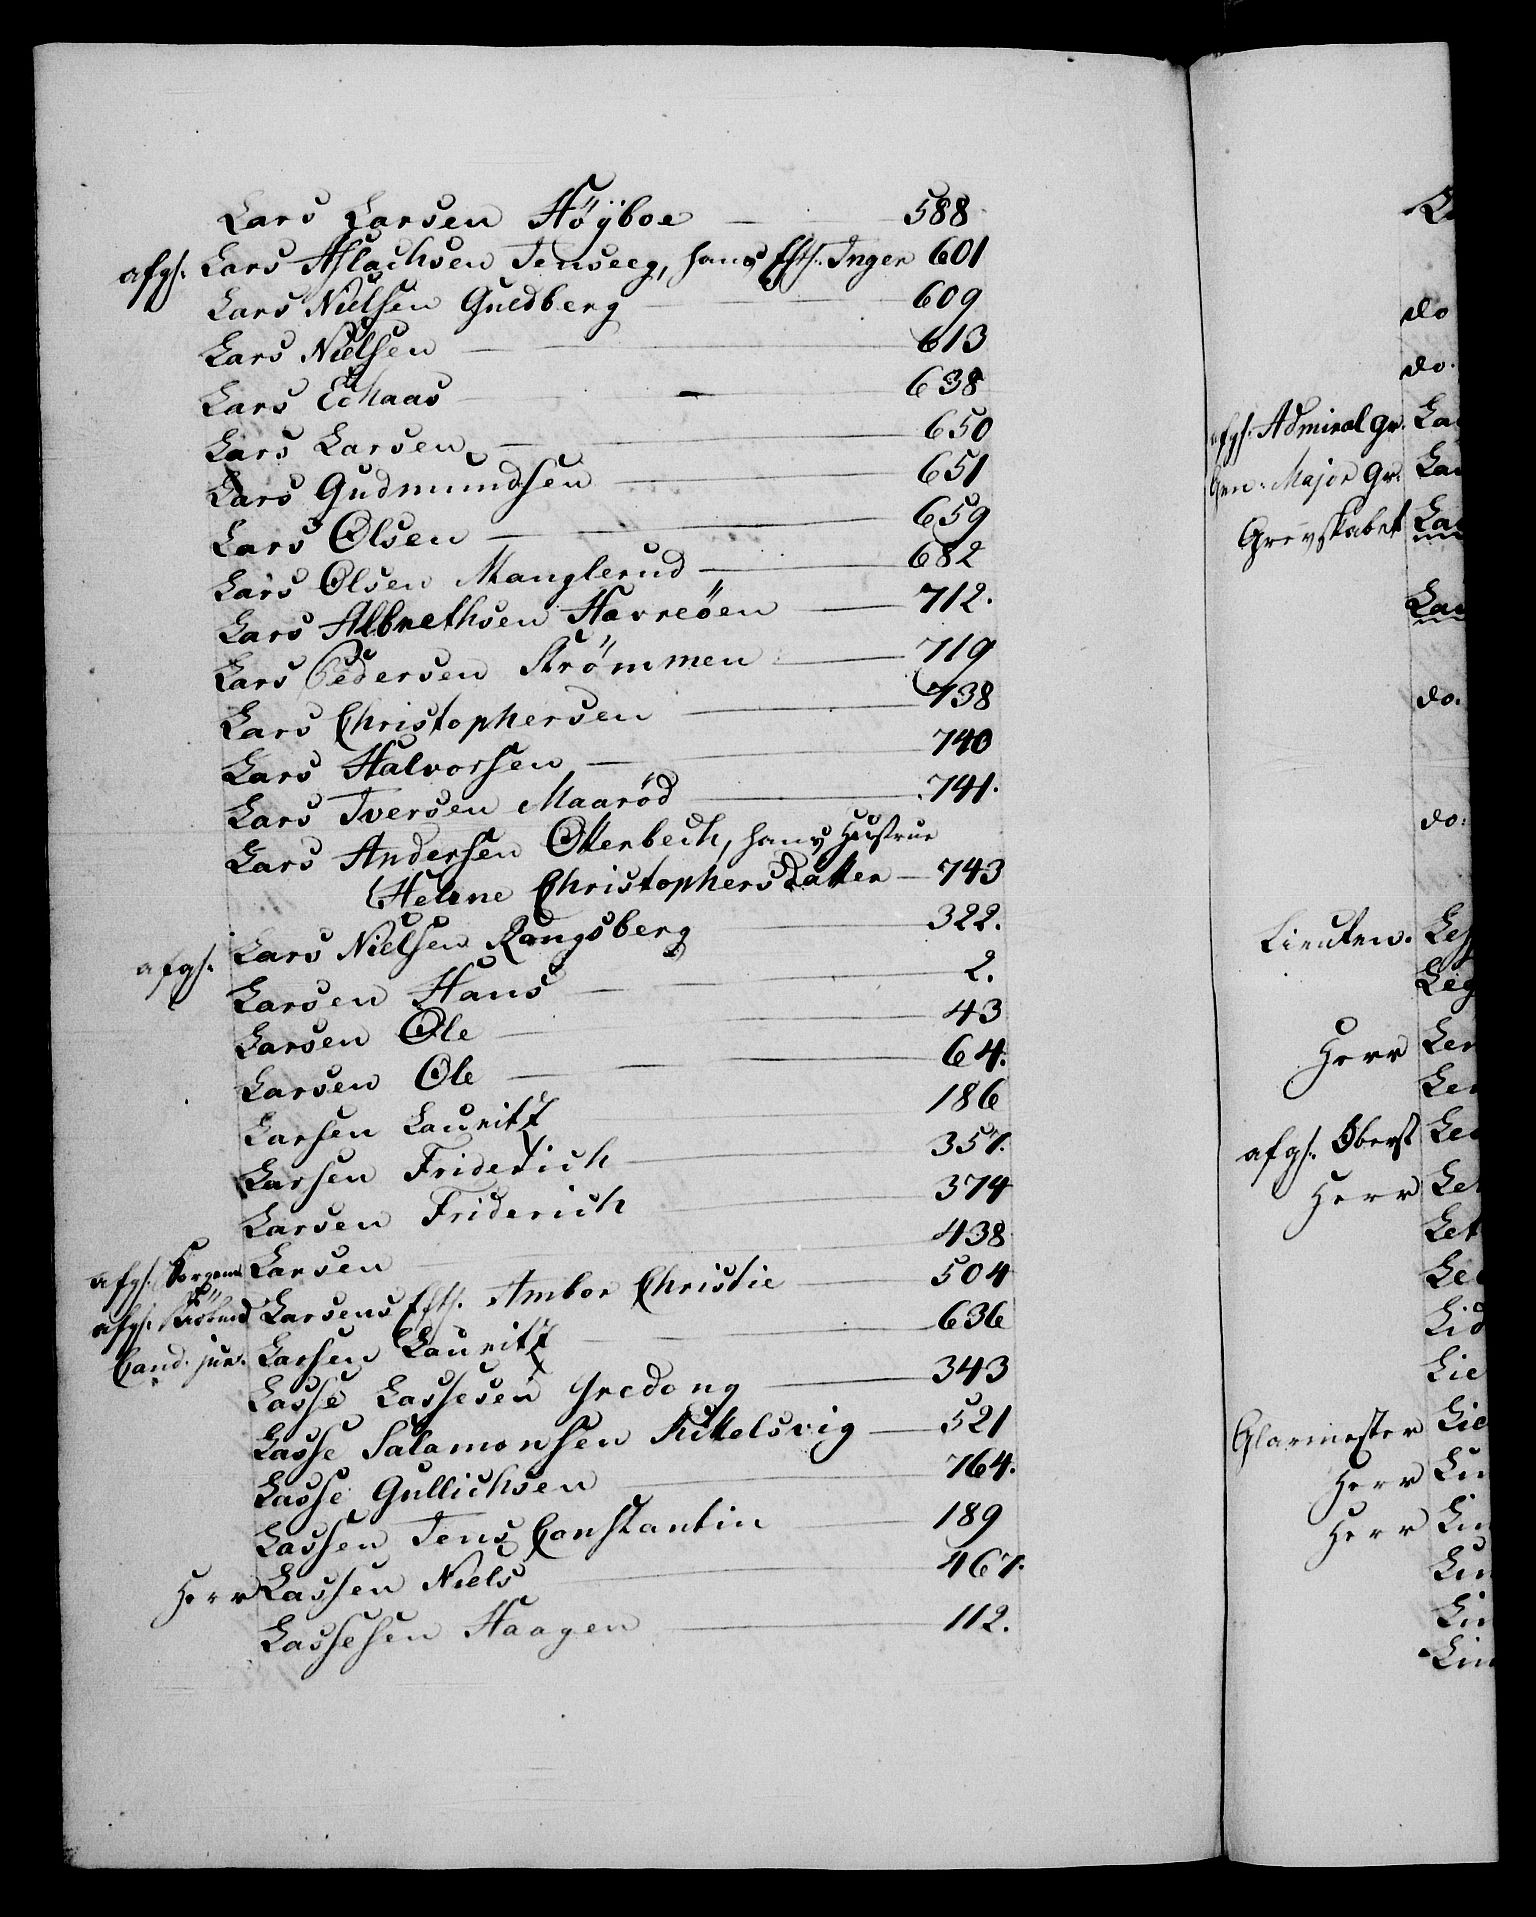 Lars Larsen Höÿboe — 588
afgs. Lars Aslachsen Tenseeg, hans Eft. Inger 601
Lars Nielsen Guldberg — 609
Lars Nielsen — 613
Lars Echaas — 638
Lars Larsen — 650
Lars Gudmundsen — 651
Lars Olsen — 659
Lars Olsen Manglerud — 682
Lars Albrethsen Havreöen — 712.
Lars Pedersen Strömmen — 719
Lars Christophersen — 738
Lars Halvorsen — 740
Lars Iversen Maaröd — 741.
Lars Andersen Otterbech, hans Hustrue
Helene Christophersdatter — 743
afgs. Lars Nielsen Rangsberg — 322.
Larsen Hans — 2.
Larsen Ole — 43
Larsen Ole — 64.
Larsen Lauritz — 186
Larsen Friderich — 357.
Larsen Friderich — 374
afgs. Larsen — 438
afgs. Larsens Eft. Ambor Christie — 504
Cand. jur. Larsen Lauritz — 636
Lasse Lassesen — 343
Lasse Salamonsen Kittelsvig — 521
Lasse Gullichsen — 764.
Lassen Jens Constantin — 189
Herr Lassen Niels — 467.
Lassesen Haagen — 112.
do
do.
afgs. Admiral Gr. La
Gen: Major Gr. La
Grevskabet La
La
do.
do.
Lieuten. Le
Leg
Herr Le
Le
afgs. Oberst Le
Herr Le
Let
Le
Lid
Lie
Glarmester Lie
Herr Li
Herr Lin
Lin
Lin
Lin